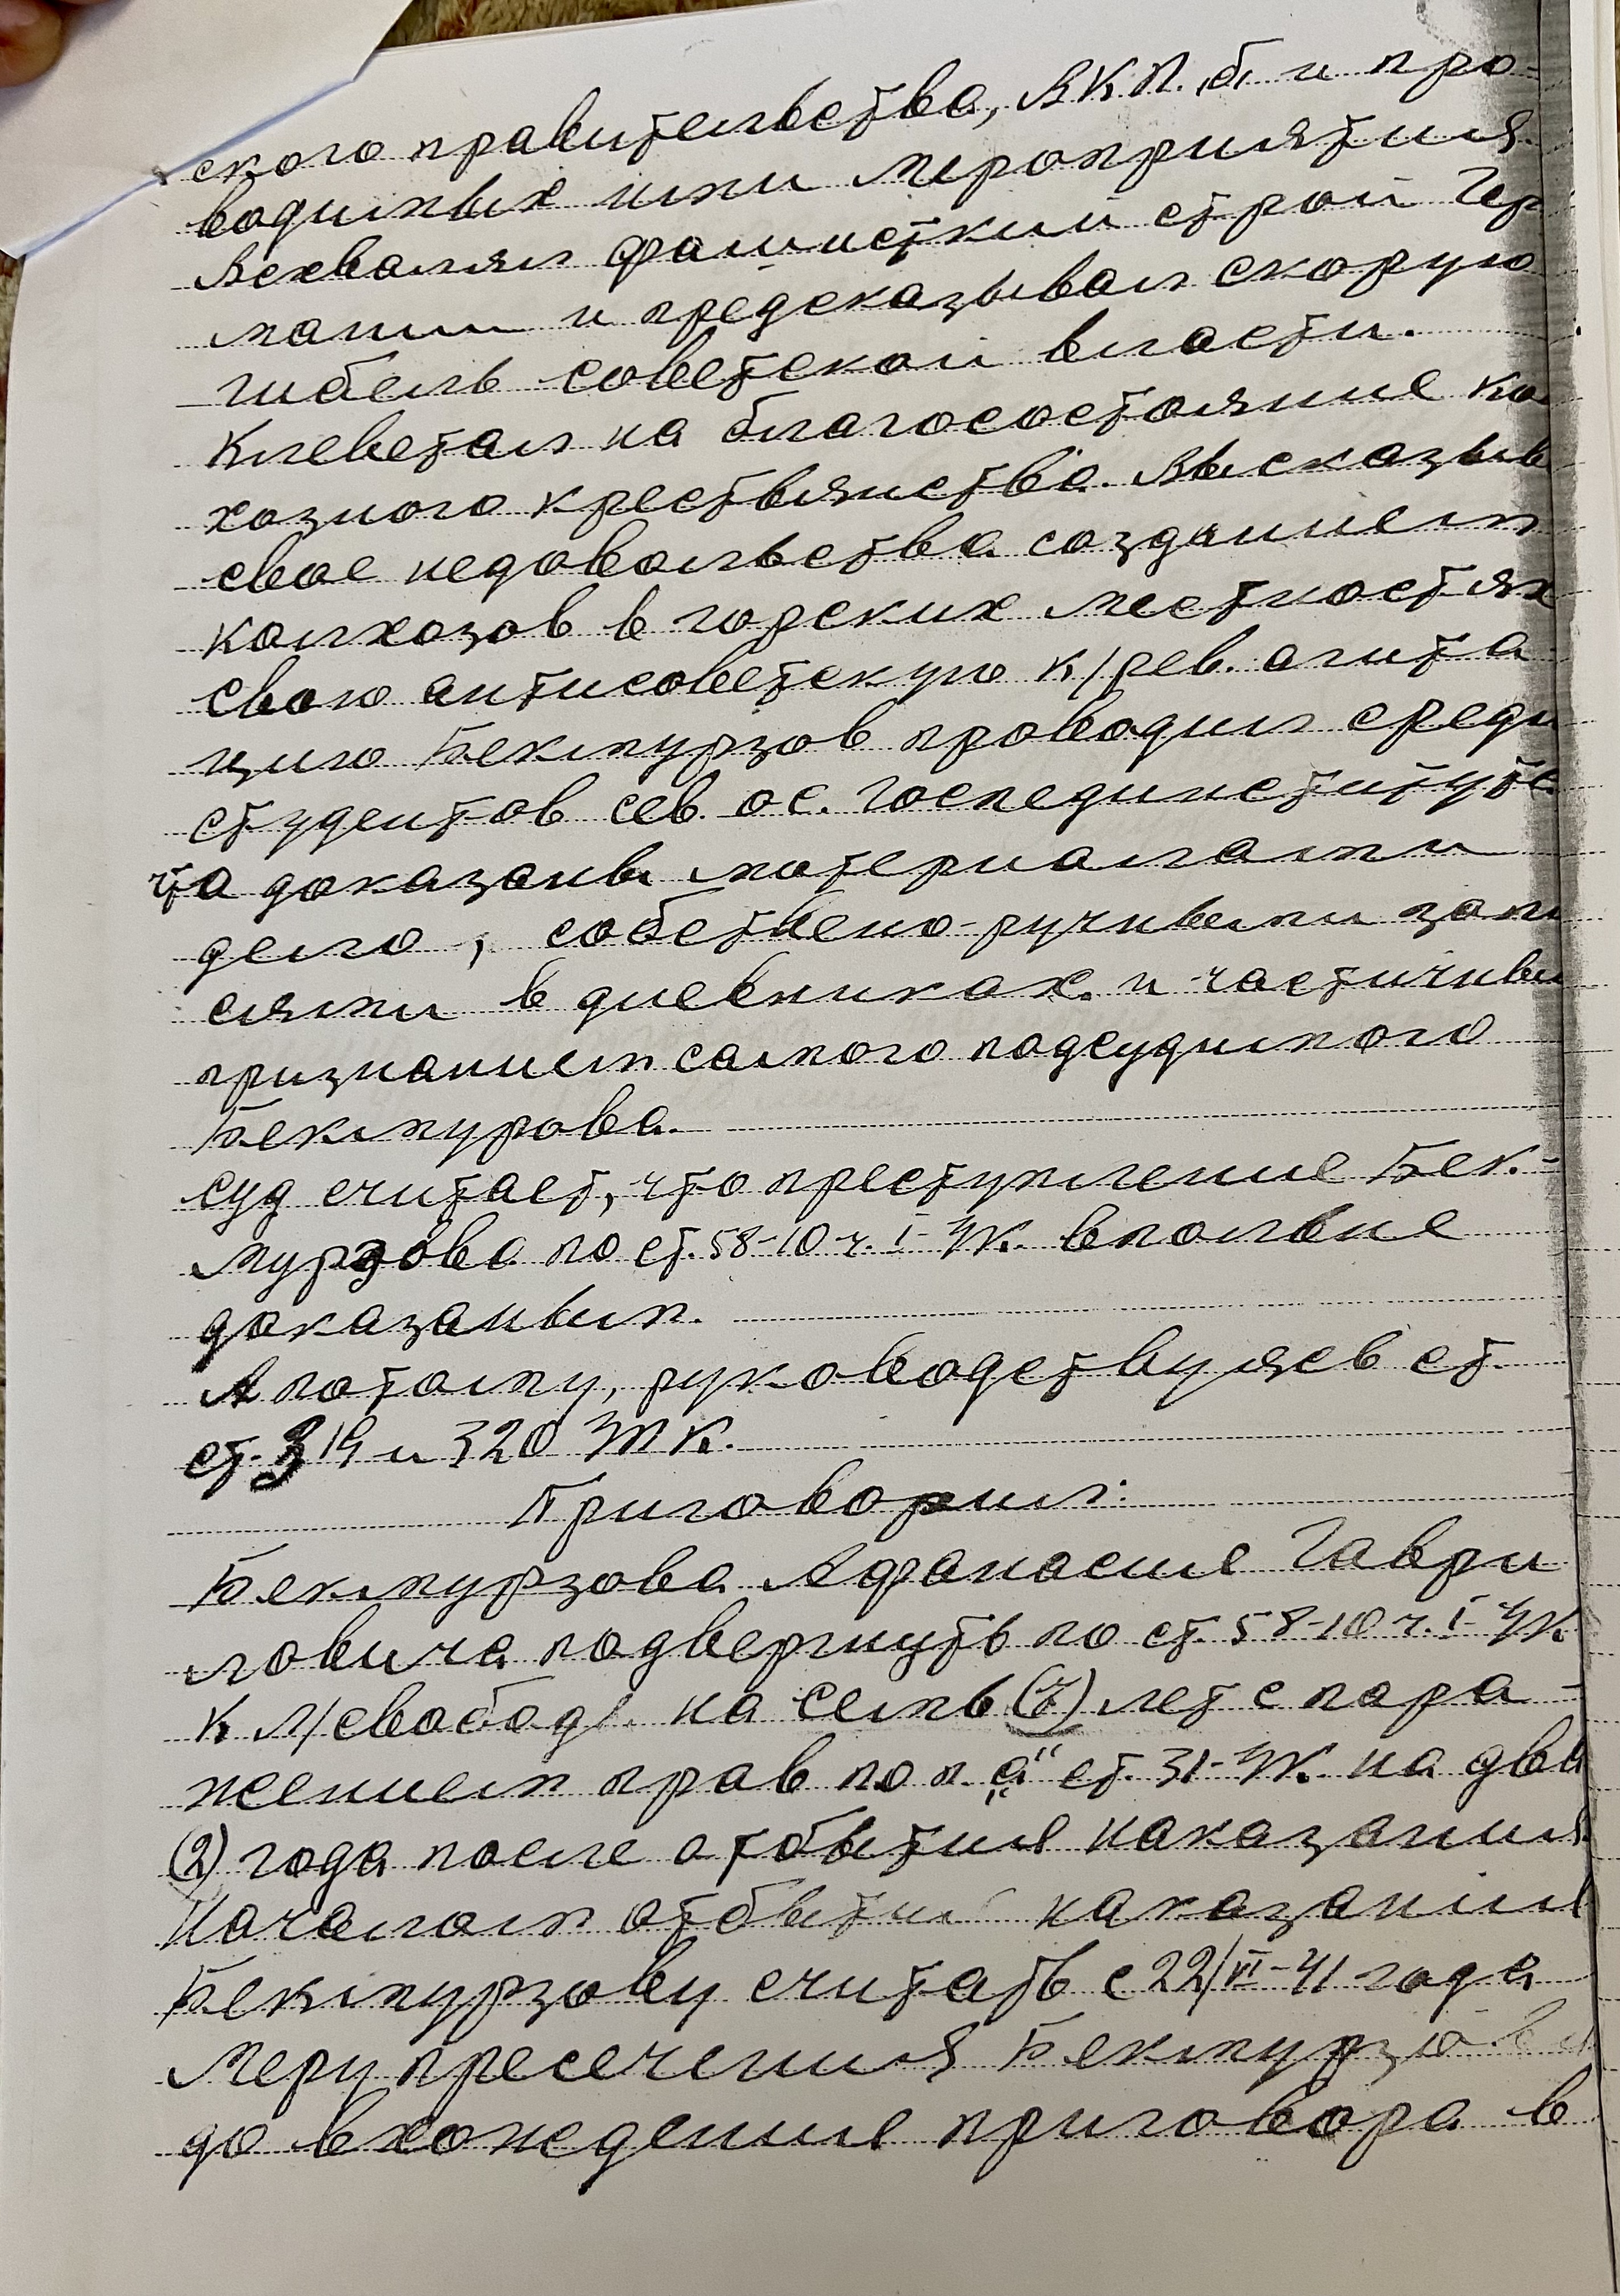 ского правительства, ВКП.б. и про-
водимых ими мероприятия.
Восхвалял фашисткий строй Гер
мании и предсказывал скорую
гибель советской власти.
Клеветал на благосостояние ко
хозного крестьянства. Высказыв
свое недовольства созданием
колхозов в горских местностях
свою антисоветскую к/рев. агита
цию Бекмурзов проводил среди
студентов сев. ос. Госпединститута
что доказаны материалами
дела, собствено-ручными запи
сями в дневниках и частичны
признанием самого подсудимого
Бекмурова.
Суд считает, что преступление Бек-
мурзова по ст. 58-10 ч. I УК. вполне
доказаным.
А потому, руководствуясь ст.
ст. 319 и 320 УПК.
Приговорил:
Бекмурзова Афанасие Гаври
ловича подвергнуть по ст. 58-10 ч. I УК
к л/свобод. на семь (7) лет с пора-
жением прав по п. „а“ ст. 31-УК. на два
(2) года после отбытие наказания
Началом отбытие наказание
Бекмурзову считать с 22/VI-41 года
Меру пресечения Бекмурзову
до вхождение приговора в